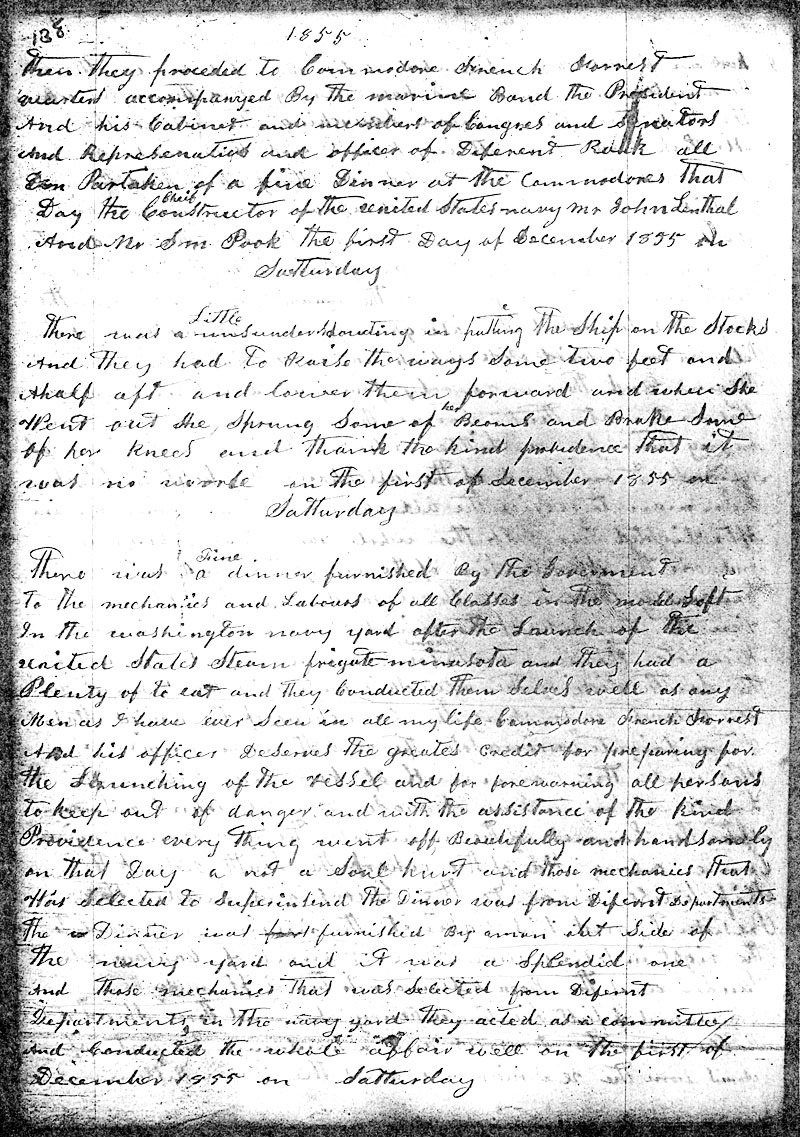 138 1855
then they proceded to Commodore French Forrest
quarters accompanyed By the marine Band the President
And his Cabinet and members of Congres and Senators
And Represenatius and officer of Diferent Rank all
Partaken of a fine Dinner at the Commodores that
Day the Cheif Constructor of the united States navy mr John Lenthal
And Mr Sm Pook the first Day of December 1855 on
Satturday
there was a Little misunderstanding in putting the Ship on the Stocks
And they had to Raise the ways Some two feet and
Ahalf aft and lower them forward and when She
Went out She Sprung Some of her Beams and Brake Some
of her Knees and thank the kind providence that it
was no worse on the first of December 1855 on
Satturday
There was a Fine dinner furnished By the Goverment
to the mechanics and Labours of all Classes in the model Loft
In the washington navy yard after the Launch of the
united States Steam frigate minnsota and they had a
Plenty of to eat and they Conducted them Selves well as any
Men as I have ever Seen in all my life Commodore French Forrest
And his officer Deserves the greates credit for preparing for
the Launching of the vessel and for forewarning all persons
to keep out of danger and with the assistance of the Kind
Providence every thing went off Beautifully and handsomly
on that Day a not a Soul hurt and those mechanics that
Was Selected to Superintend the Dinner was from Diferent Departments
The Dinner was furnished By aman out Side of
the navy yard and it was a Splendid one
And those mechanics that was Selected from Difernt
Departments in the navy yard they acted as a committey
And Conducted the whole affair well on the first of
December 1855 on Satturday